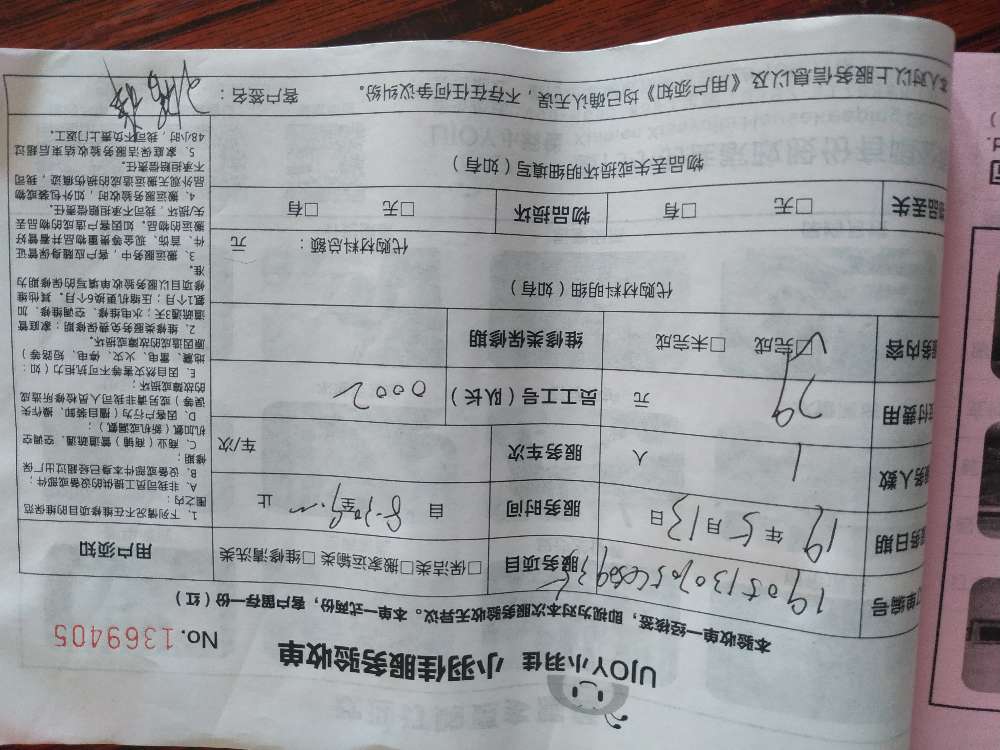 UJOY小羽佳 小羽佳服务验收单
No. 1369405
本验收单一经核签，即视为对本次服务验收无异议。本单一式两份，客户留存一份（红）
单编号
服务项目 □保洁类□搬家运输类 □维修清洗类
用户须知
务日期 19 年 5 月 13 日
服务时间 自 8:30 至 止
务人数 1 人
服务车次 车/次
付费用 29 元
员工工号（队长） 0002
务内容 □完成 □未完成
维修类保修期
代购材料明细（如有）
代购材料总额： 元
品丢失 □无 □有
物品损坏 □无 □有
物品丢失或损坏明细填写（如有）
本人对以上服务信息以及《用户须知》均已确认无误，不存在任何争议纠纷。 客户签名：
1. 下列情况不在维修项目的维保范
围之内：
A. 非我司员工提供的设备或部件；
B. 设备或部件本身已经超过出厂保
修期；
C. 商业（商铺）管道疏通、空调空
机加氨（新机或漏氨）；
D. 因客户行为（擅自装卸、操作失
误等）或另请非我司人员检修所造成
的故障或损坏；
E. 因自然灾害等不可抗拒力（如：
地震、雷电、火灾、停电、短路等）
原因造成的故障或损坏。
2. 维修类服务免费保修期：家庭管
道疏通3天；水电维修、空调维修、加
氨1个月；压缩机更换6个月。其他维
修项目以服务验收单填写的保修期为
准。
3. 搬运服务中，客户应随身保管证
件、首饰、现金等贵重物品并看管好
搬运的物品。如因客户造成的物品丢
失/损坏，我司不承担赔偿责任。
4. 搬运服务验收时，如外包装或物
品外观无搬运造成的损伤痕迹，我司
不承担赔偿责任。
5. 家庭保洁服务验收结束后超过
48小时，我司不负责上门返工。